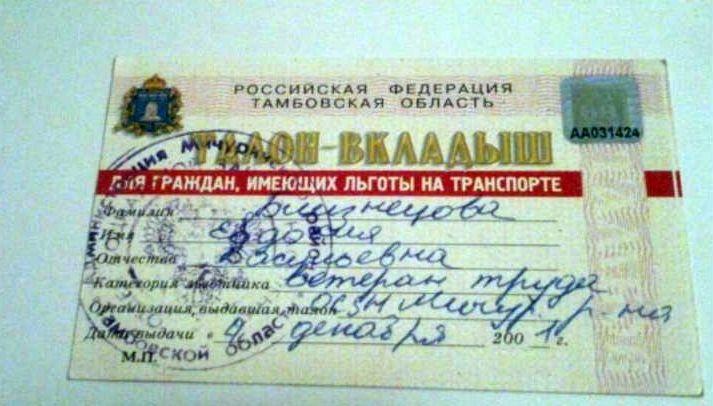 РОССИЙСКАЯ ФЕДЕРАЦИЯ
ТАМБОВСКАЯ ОБЛАСТЬ
АА031424
ТАЛОН-ВКЛАДЫШ
ДЛЯ ГРАЖДАН, ИМЕЮЩИХ ЛЬГОТЫ НА ТРАНСПОРТЕ
Фамилия Близнецова
Имя Евдокия
Отчество Васильевна
Категория льготника ветеран труда
Организация, выдавшая талон ОСЗН Мичур. р-на
Дата выдачи « декабря 2001 г.
М.П.